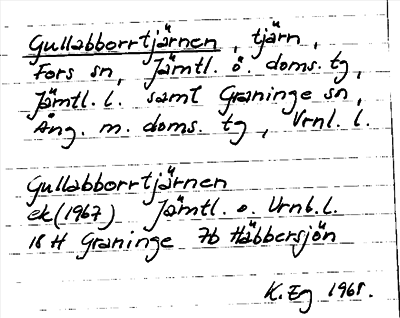 Gullabborrtjärnen, tjärn,
Fors sn, Jämtl. ö. doms. tg,
Jämtl. l. samt Graninge sn,
Ång. m. doms. tg, Vrnl. l.
Gullabborrtjärnen
ek (1967) Jämtl. o. Vrnb. l.
18 H Graninge 7b Häbbersjön
K. Eg 1968.